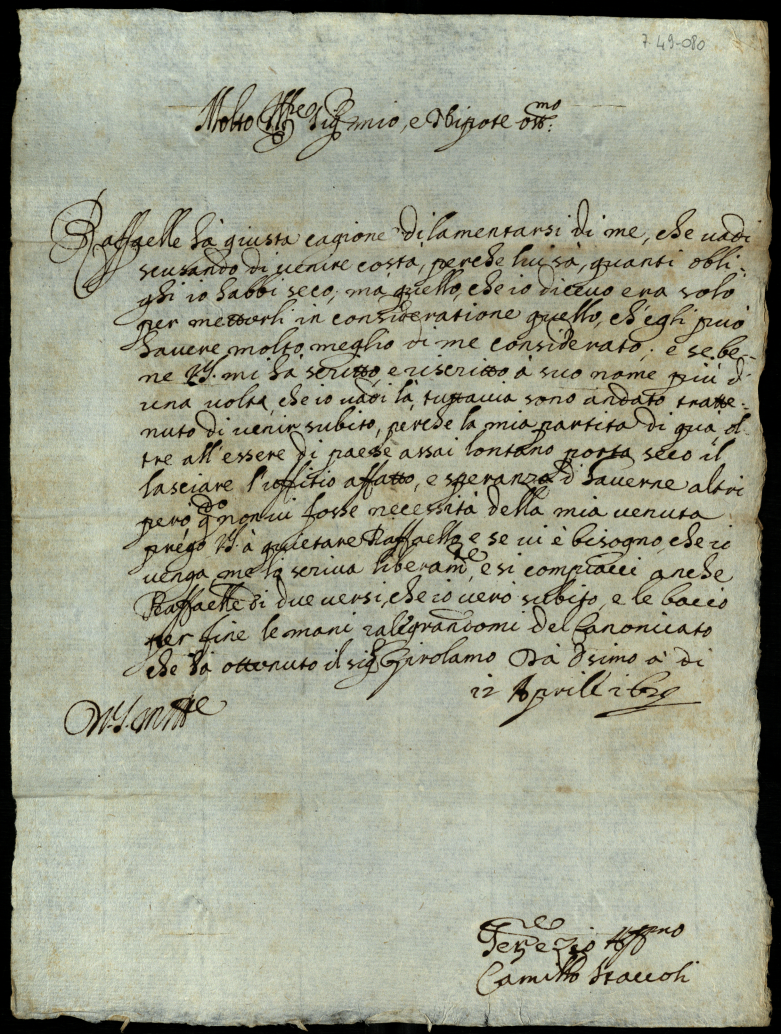 7-49-080
Molto Ill.re Sig.r mio, e Nipote oss.mo
Raffaelle hà giusta cagione di lamentarsi di me, che uadi
scusando di uenire costa, perche lui sà, quanti obli-
ghi io habbi seco, ma quello, che io diceuo era solo
per metterli in consideratione quello, ch'egli può
hauere molto meglio di me considerato, e se be-
ne VS. mi ha scritto, e riscritto à suo nome più d'
una uolta, che io uadi là, tuttauia sono andato tratte-
nuto di uenir subito, perche la mia partita di quà ol
tre all'essere di paese assai lontano porta seco il
lasciare l'offitio affatto, e speranza d'hauerne altri
però q.do non ui fosse necessità della mia uenuta
prego VS à quietare Raffaelle, e se ui è bisogno, che io
uenga me lo scriua liberam.te, e si compiacci anche
Raffaelle di due uersi, che io uerò subito, e le bacio
per fine le mani ralegrandomi del Canonicato
che hà ottenuto il sig.r Girolamo Dà Osimo à di
12 Aprile 1629
D.V.S. m.to Ill.re
Ser.re e Zio Aff.mo
Camillo Staccoli